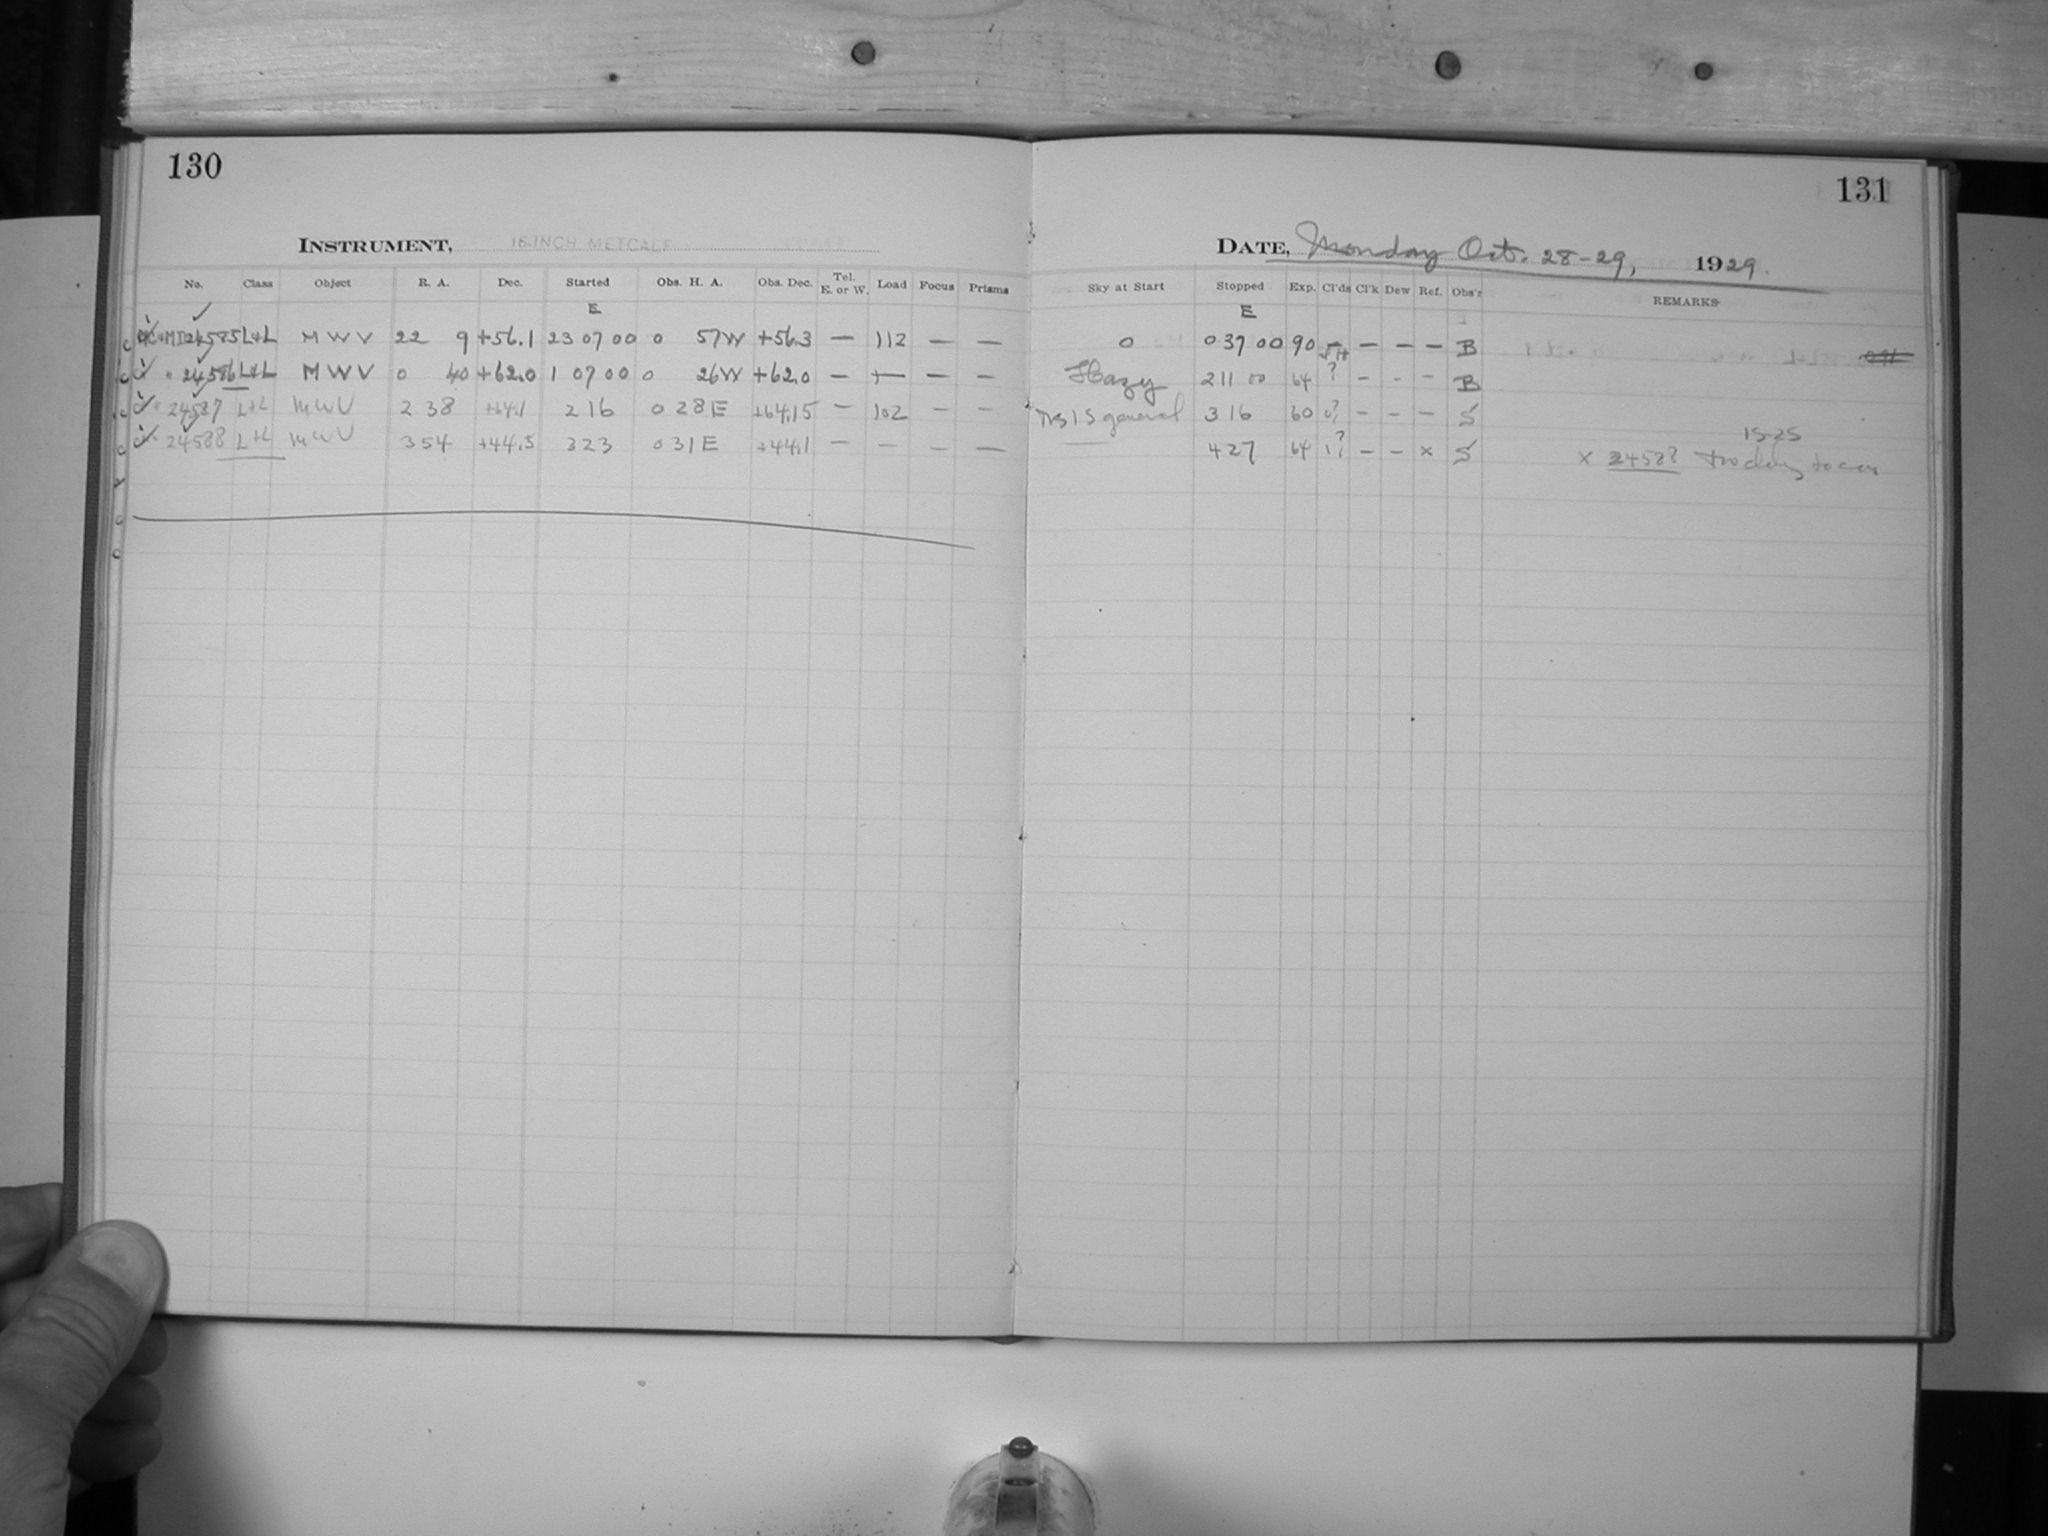 130
INSTRUMENT, 16-INCH METCALF
No. Class Object R. A. Dec. Started Obs. H. A. Obs. Dec. Tel. E. or W. Load Focus Prisms
E
MC 24585 L+L M W V 22 9 +56.1 23 07 00 0 57W +56.3 — 112 — —
" 24586 L+L M W V 0 40 +62.0 1 07 00 0 26W +62.0 — — — —
" 24587 L+L MWV 2 38 +64.1 2 16 0 28 E +64.15 — 102 — —
24588 L+L MWV 3 54 +44.5 3 23 0 31 E +44.1 — — — —
131
DATE, Monday Oct. 28-29, 1929.
Sky at Start Stopped Exp. Cl'ds Cl'k Dew Ref. Obs'r REMARKS
E
0 0 37 00 90 — — — — B
Hazy 2 11 00 64 ? — - — B
general 3 16 60 ? — — — S
4 27 64 1? — — x S
15-25
x 24588